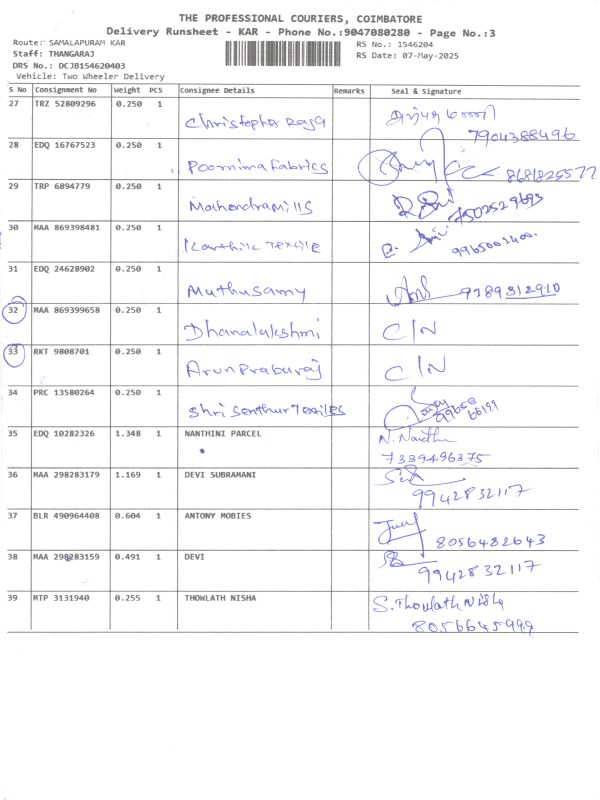 THE PROFESSIONAL COURIERS, COIMBATORE
Delivery Runsheet - KAR - Phone No.:9047080280 - Page No.:3
Route: SAMALAPURAM KAR
Staff: THANGARAJ
DRS No.: DCJB154620403
Vehicle: Two Wheeler Delivery
RS No.: 1546204
RS Date: 07-May-2025
S No Consignment No Weight PCS Consignee Details Remarks Seal & Signature
27 TRZ 52809296 0.250 1 Christopher Raja 7904388496
28 EDQ 16767523 0.250 1 Poornima Fabrics 8681825577
29 TRP 6894779 0.250 1 Mahendra mills 7502529693
30 MAA 869398481 0.250 1 Karthik Textile
31 EDQ 24628902 0.250 1 Muthusamy 9789312910
32 MAA 869399658 0.250 1 Dhanalakshmi C/N
33 RKT 9808701 0.250 1 Arun Praburaj C/N
34 PRC 13580264 0.250 1 Shri Senthur Textiles
35 EDQ 10282326 1.348 1 NANTHINI PARCEL N. Nandhi 7339496375
36 MAA 298283179 1.169 1 DEVI SUBRAMANI 9942832117
37 BLR 490964408 0.604 1 ANTONY MOBIES 8056482643
38 MAA 298283159 0.491 1 DEVI 9942832117
39 MTP 3131940 0.255 1 THOWLATH NISHA S. Thowlath Nisha 8056645999